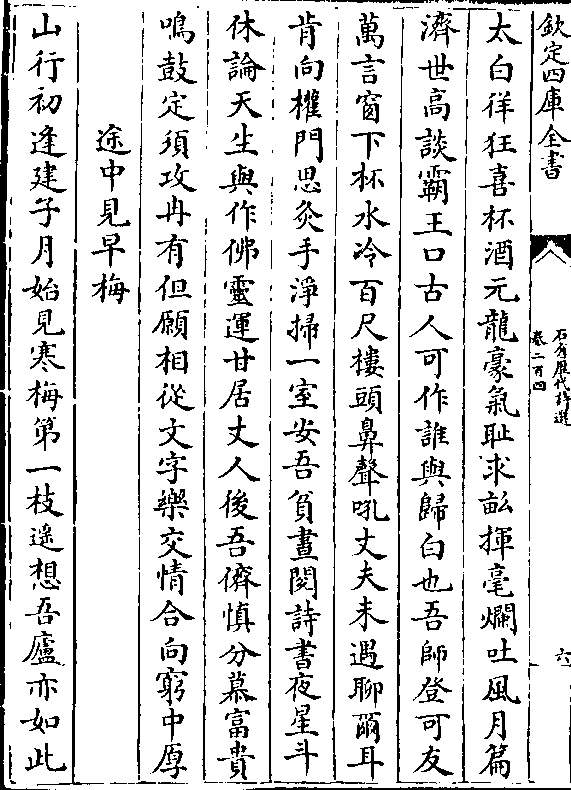 欽定四庫全書
石倉歷代詩選
卷二百四
六
太白徉狂喜杯酒元龍豪氣耻求畝揮毫爛吐風月篇
濟世高談霸王口古人可作誰與歸白也吾師登可友
萬言窗下杯水冷百尺樓頭鼻聲吼丈夫未遇聊爾耳
肯向權門思灸手淨掃一室安吾負晝閱詩書夜星斗
休論天生與作佛靈運甘居丈人後吾儕慎分慕富貴
鳴鼓定須攻冉有但願相從文字樂交情合向窮中厚
途中見早梅
山行初逢建子月始見寒梅第一枝遥想吾廬亦如此